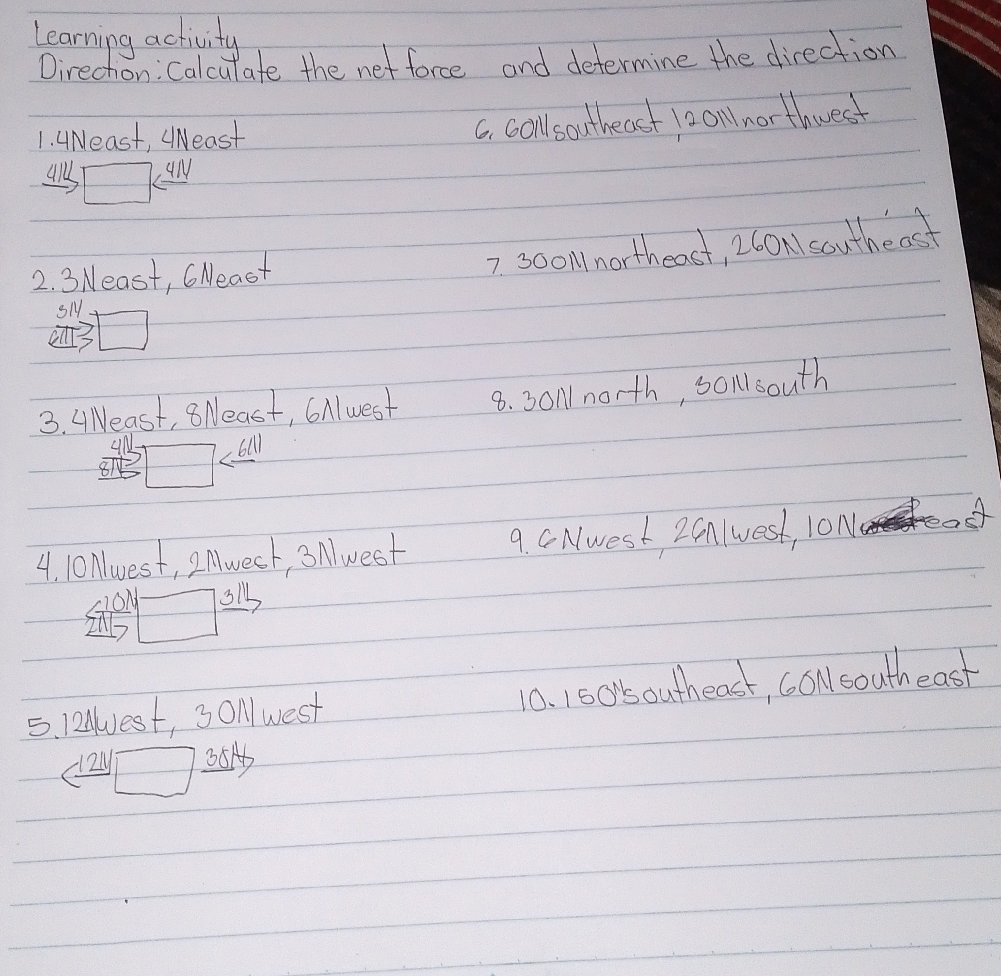 Learning activity
Direction: Calculate the net force and determine the direction
1. 4N east, 4N east
4N 4N
2. 3N east, 6N east
3N
6N
3. 4N east, 8N east, 6N west
4N 6N
8N
4. 10N west, 2N west, 3N west
10N 3N
2N
5. 12N west, 30N west
12N 30N
6. 60N southeast, 120N northwest
7. 300N northeast, 260N southeast
8. 30N north, 30N south
9. 6N west, 26N west, 10N east
10. 150N southeast, 60N southeast